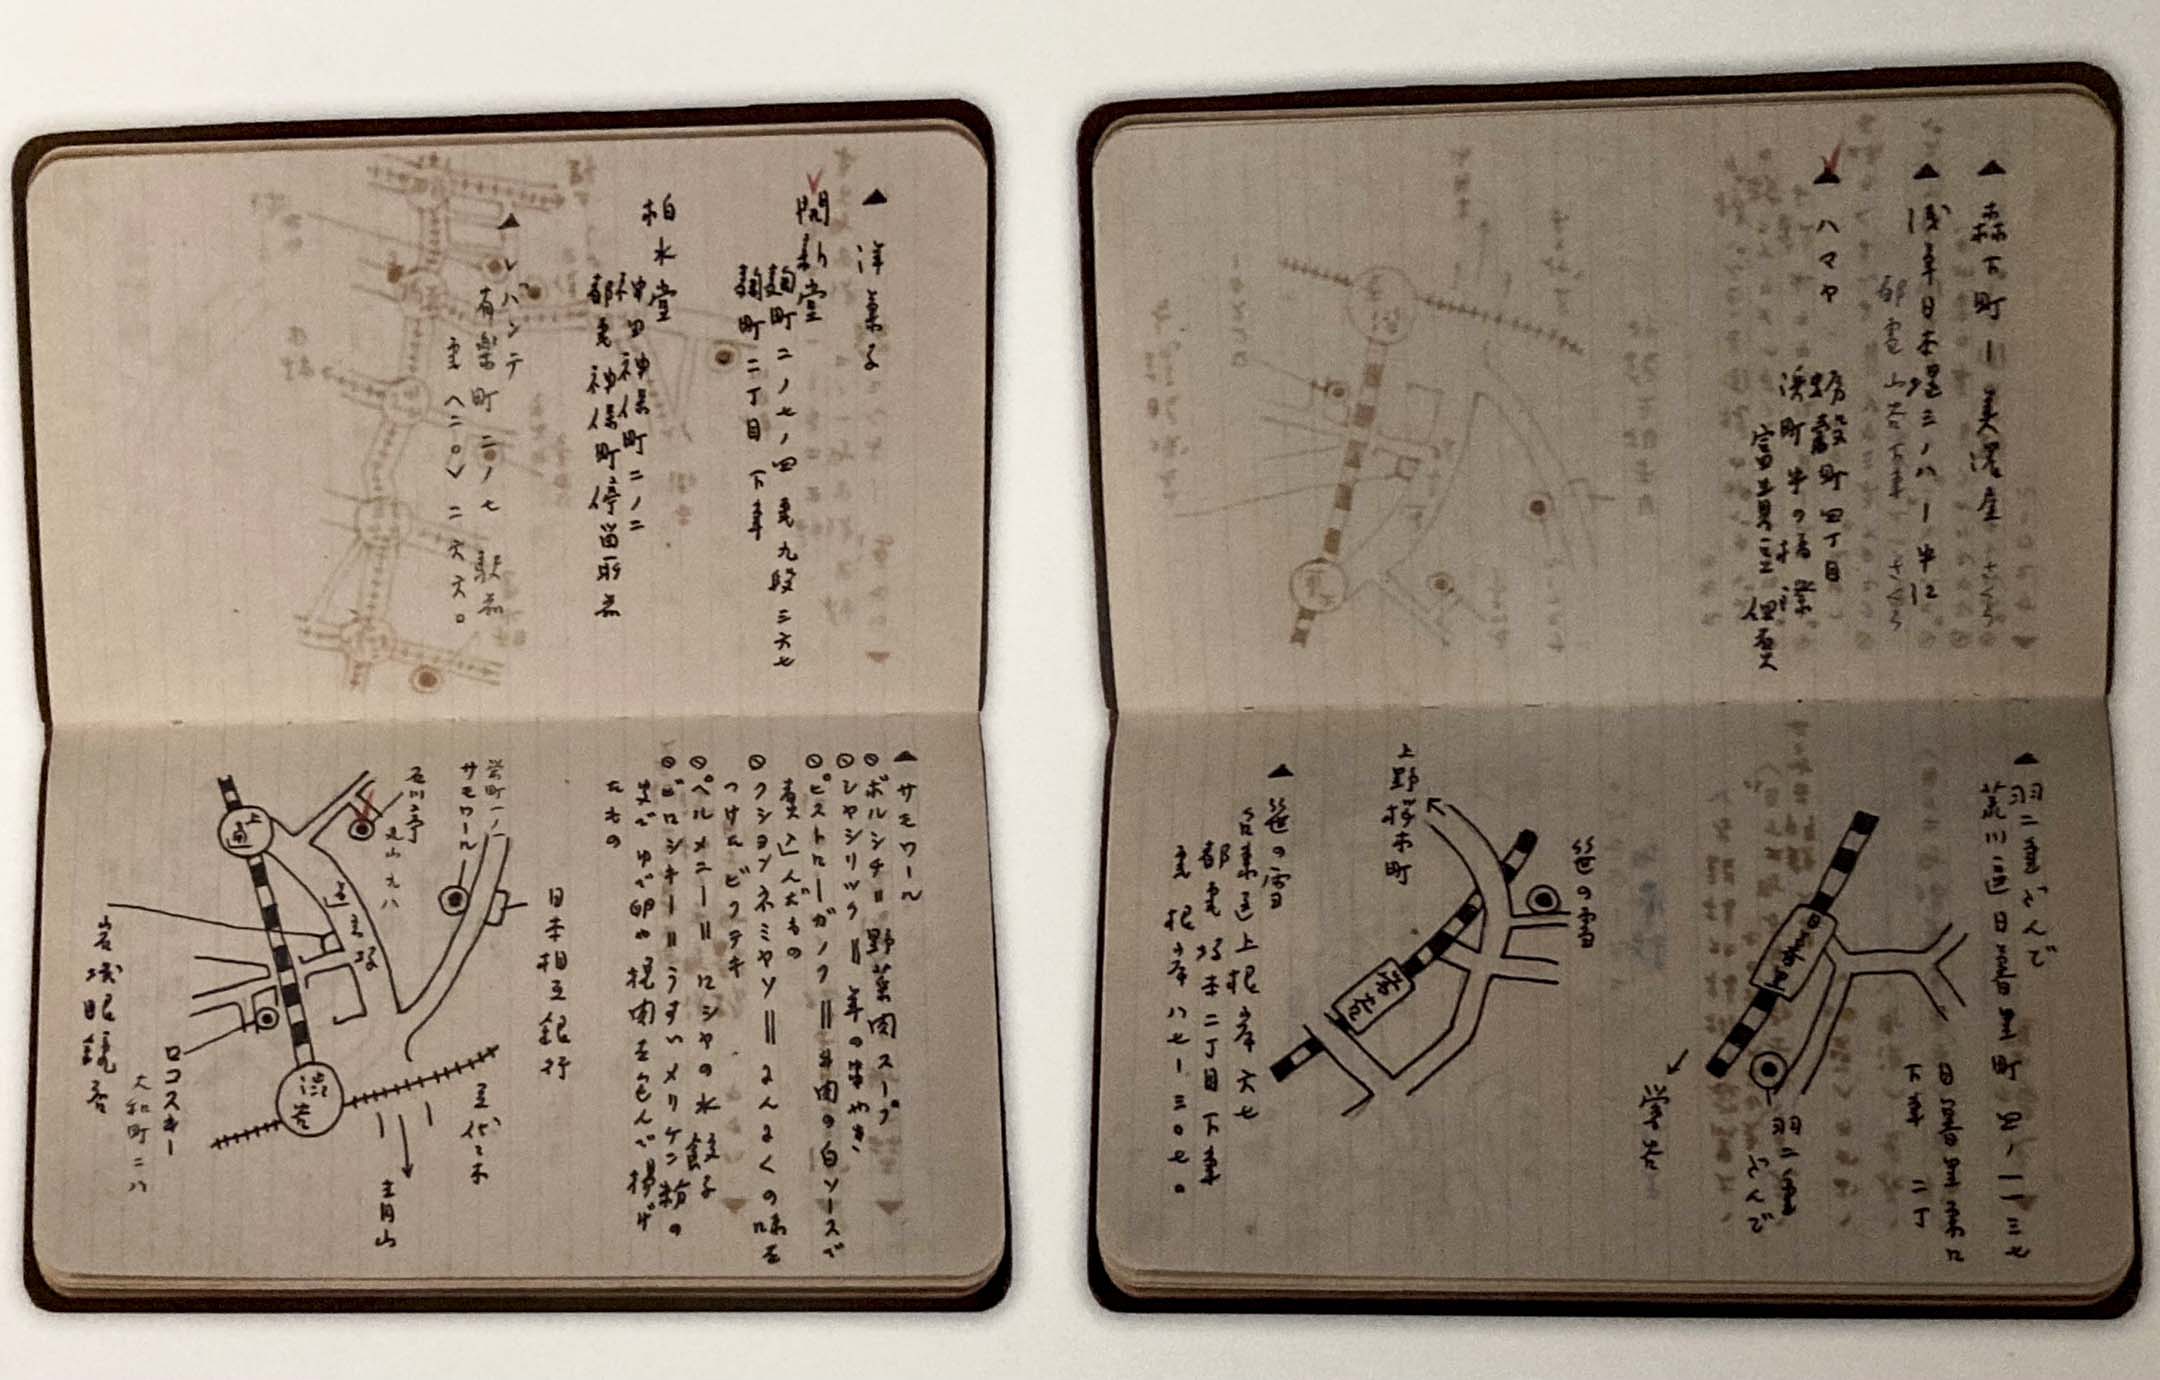 ▲ 森下町ー美濃屋
▲ 浅草日本堤三ノ八ー中江
▲ ハマヤ
蛎殻町四丁目
▲ 羽二重だんご
荒川区日暮里町
日暮里
下車
日暮里
羽二重だんご
笹の雪
上野桜木町
▲ 笹の雪
台東区上根岸六七
都電坂本二丁目下車
電根岸八七ー三〇七〇
▲ 洋菓子
開新堂
麹町二ノ七ノ四 電九段三六七
麹町二丁目下車
柏水堂
神田神保町二ノ二
都電神保町停留所前
▲ レバンテ
有楽町二ノ七 駅前
電〈二〇〉二六六〇
▲ サモワール
ボルシチ=野菜肉スープ
シャシリック=羊の串やき
ピストローガノフ=牛肉の白ソースで
煮込んだもの
つけたビフテキ
ペルメニー=ロシヤの水餃子
ピロシキー=うすいメリケン粉の
皮でゆで卵や挽肉を包んで揚げ
たもの
日本相互銀行
サモワール
石川亭
丸山九八
上通
道玄坂
玉代々木
青山
渋谷
ロゴスキー
大和町二八
岩城眼鏡店